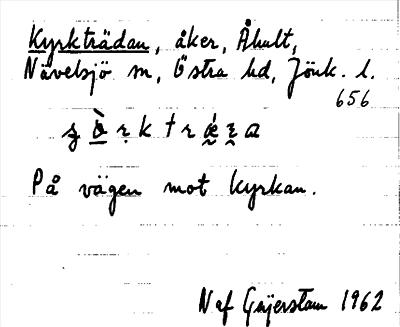 Kyrkträdan, åker, Åhult,
Nävelsjö sn, Östra hd, Jönk. l.
656
På vägen mot kyrkan.
N af Geijerstam 1962